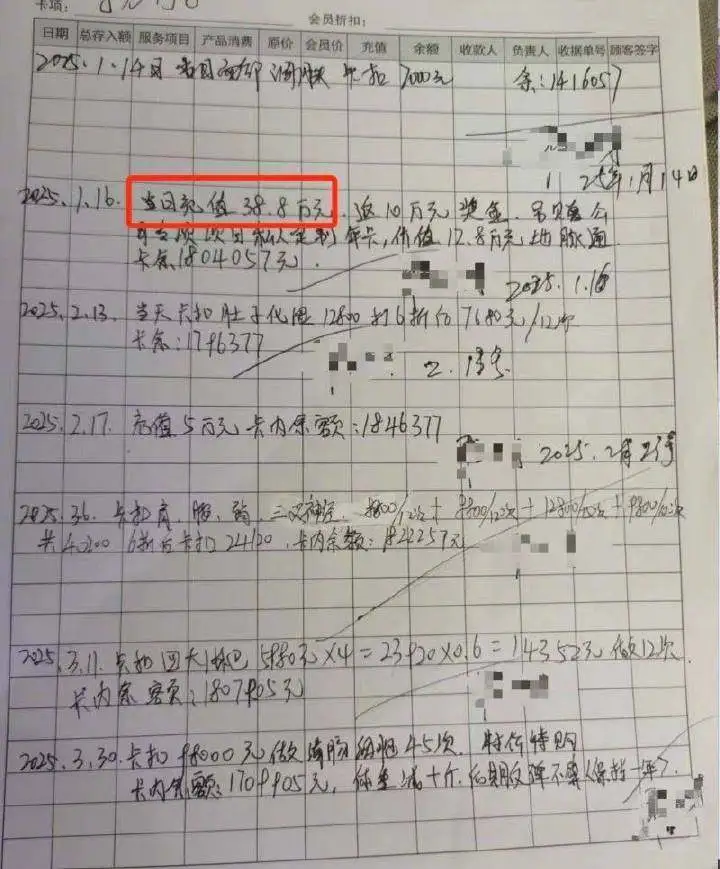 卡项：
会员折扣：
日期 总存入额 服务项目 产品消费 原价 会员价 充值 余额 收款人 负责人 收据单号 顾客签字
2025.1.14日 卡扣 7000元 余：1416057
25年1月14日
2025.1.16. 当日充值 38.8万元. 返10万元奖金.
年卡，价值12.8万元
卡余1804057元.
2025.1.16
2025.2.13. 当天卡扣肚子化湿 12800 打6折后7680元/12次
卡余：1796377
2.13号
2025.2.17. 充值5万元 卡内余额：1846377
2025.2月
2025.3.6. 卡扣肩、三叉神经. 9800/12次+12800/12次+9800/12次
共40200 6折后卡扣24120.卡内余额：1822257元
2025.3.11.卡扣四大 5980元×4=23920×0.6=14352元 做12次.
卡内余额：1807905元
2025.3.30.卡扣98000元做 45次. 特价特购
卡内余额：1709905元，体重减十斤.后期反弹不要（保持一年）.